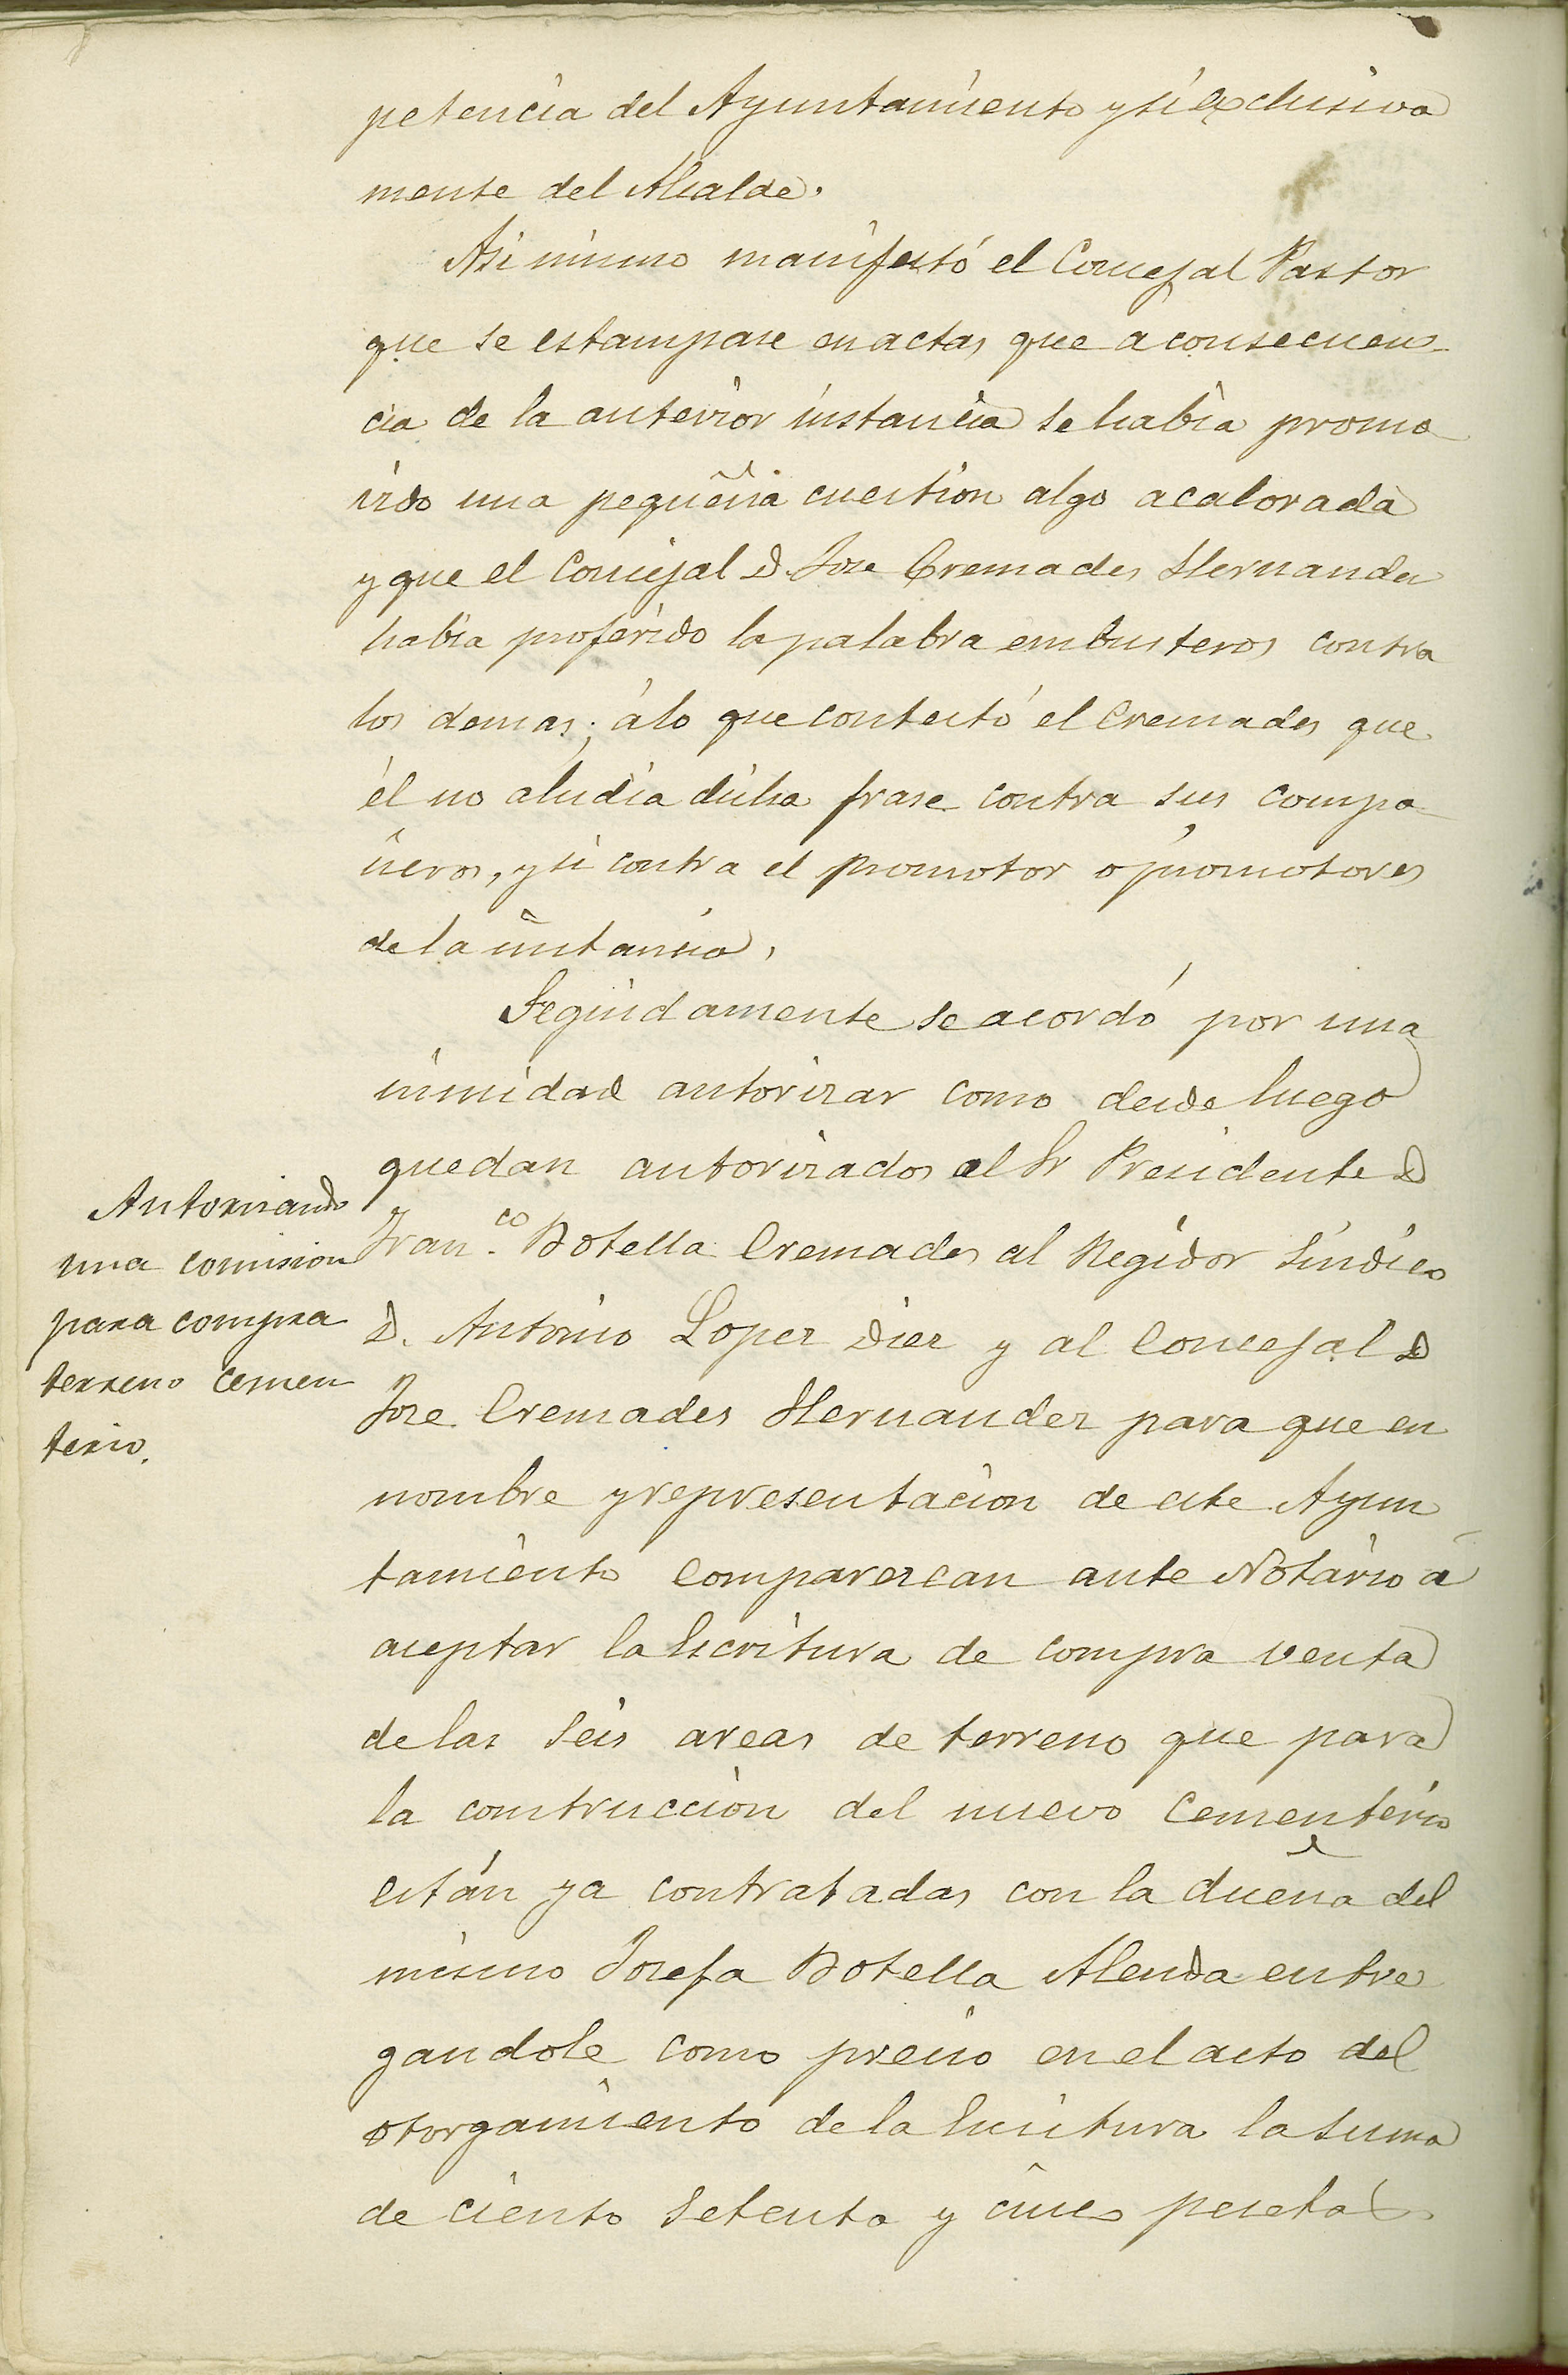 petencia del Ayuntamiento y sí exclusiva
mente del Alcalde.
Asi mismo manifestó el Concejal Pastor
que se estampase en actas que a consecuen-
cia de la anterior instancia se habia promo
vido una pequeña cuestion algo acalorada
y que el Concejal D. Jose Cremades Hernandez
habia proferido la palabra embusteros contra
los demas; á lo que contestó el Cremades que
él no aludia dicha frase contra sus compa
ñeros, y si contra el promotor o promotores
de la instancia.
Seguidamente se acordó por una
nimidad autorizar como desde luego
quedan autorizados al Sr Presidente D
Fran.co Botella Cremades al Regidor Sindico
D. Antonio Lopez Diez y al Concejal D
Jose Cremades Hernandez para que en
nombre y representacion de este Ayun
tamiento comparezcan ante Notario á
aceptar la Escritura de compra venta
de las seis areas de terreno que para
la construccion del nuevo Cementerio
están ya contratadas con la dueña del
mismo Josefa Botella Alenda entre
gandole como precio en el acto del
otorgamiento de la Escritura la suma
de ciento setenta y cinco pesetas
Autorizando
una comision
para compra
terreno cemen
terio.